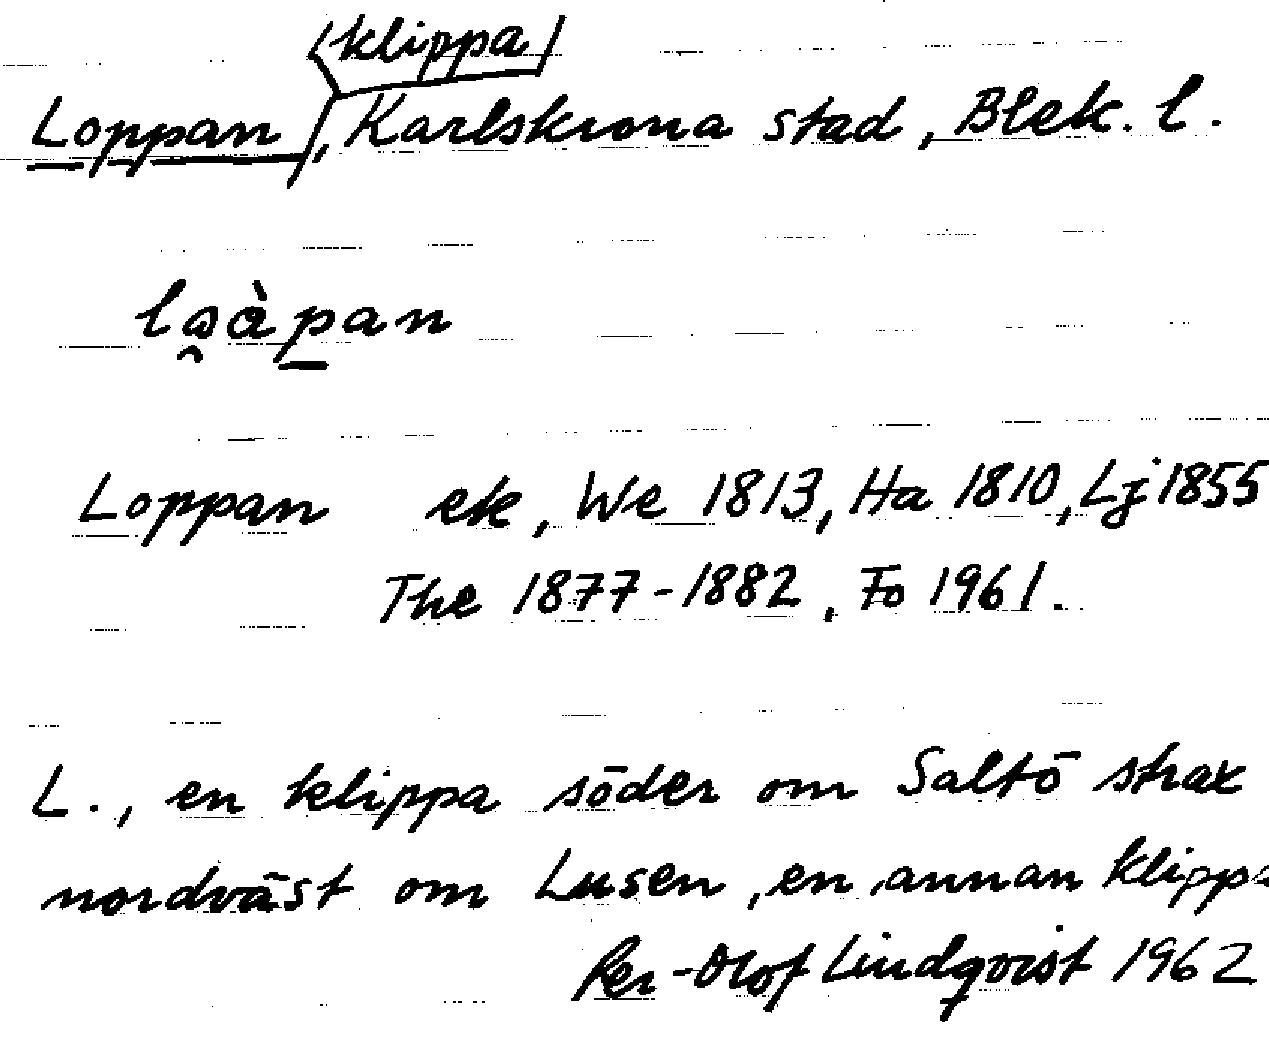 klippa
Loppan, Karlskrona stad, Blek. l.
Loppan ek, We 1813, Ha 1810, Lj 1855
The 1877-1882, Fo 1961.
L., en klippa söder om Saltö strax
nordväst om Lusen, en annan klippa
Per-Olof Lindqvist 1962